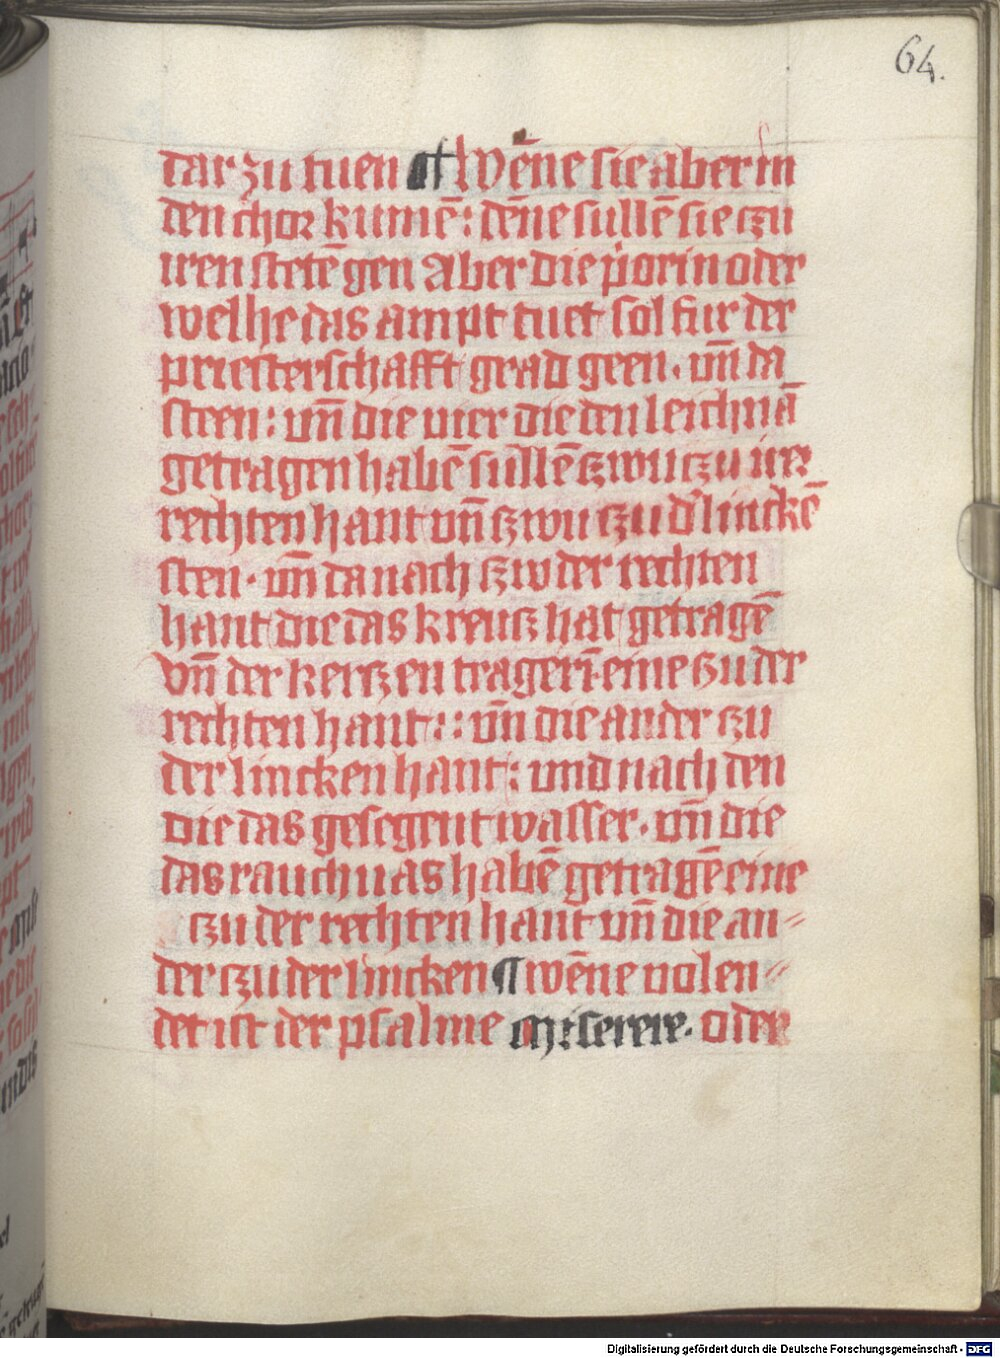 64.
dar zu tuen ¶ Wēne sie aber in
den chor kumē: dēne sullē sie czu
iren stetē gen Aber die p̄orin oder
welhe das ampt tuet sol fur der
priesterschafft grad geen. vn̄ da
steen: vn̄ die vier die den leichnā
getragen habē sullē czwu czu irer
rechten hant vn̄ czwu czu d' linckē
sten. vn̄ da nach czw der rechten
hant die das kreucz hat getragē
Vn̄ der kerczen tragerī eine zu der
rechten hant:: vn̄ die ander czu
der lincken hant: und nach den
die das gesegent wasser. vn̄ die
das rauchuas habē getragē eine
czu der rechten hant vn̄ die an=
der czu der lincken ¶ wēne volen=
det ist der psalme Miserere. oder
Digitalisierung gefördert durch die Deutsche Forschungsgemeinschaft - DFG